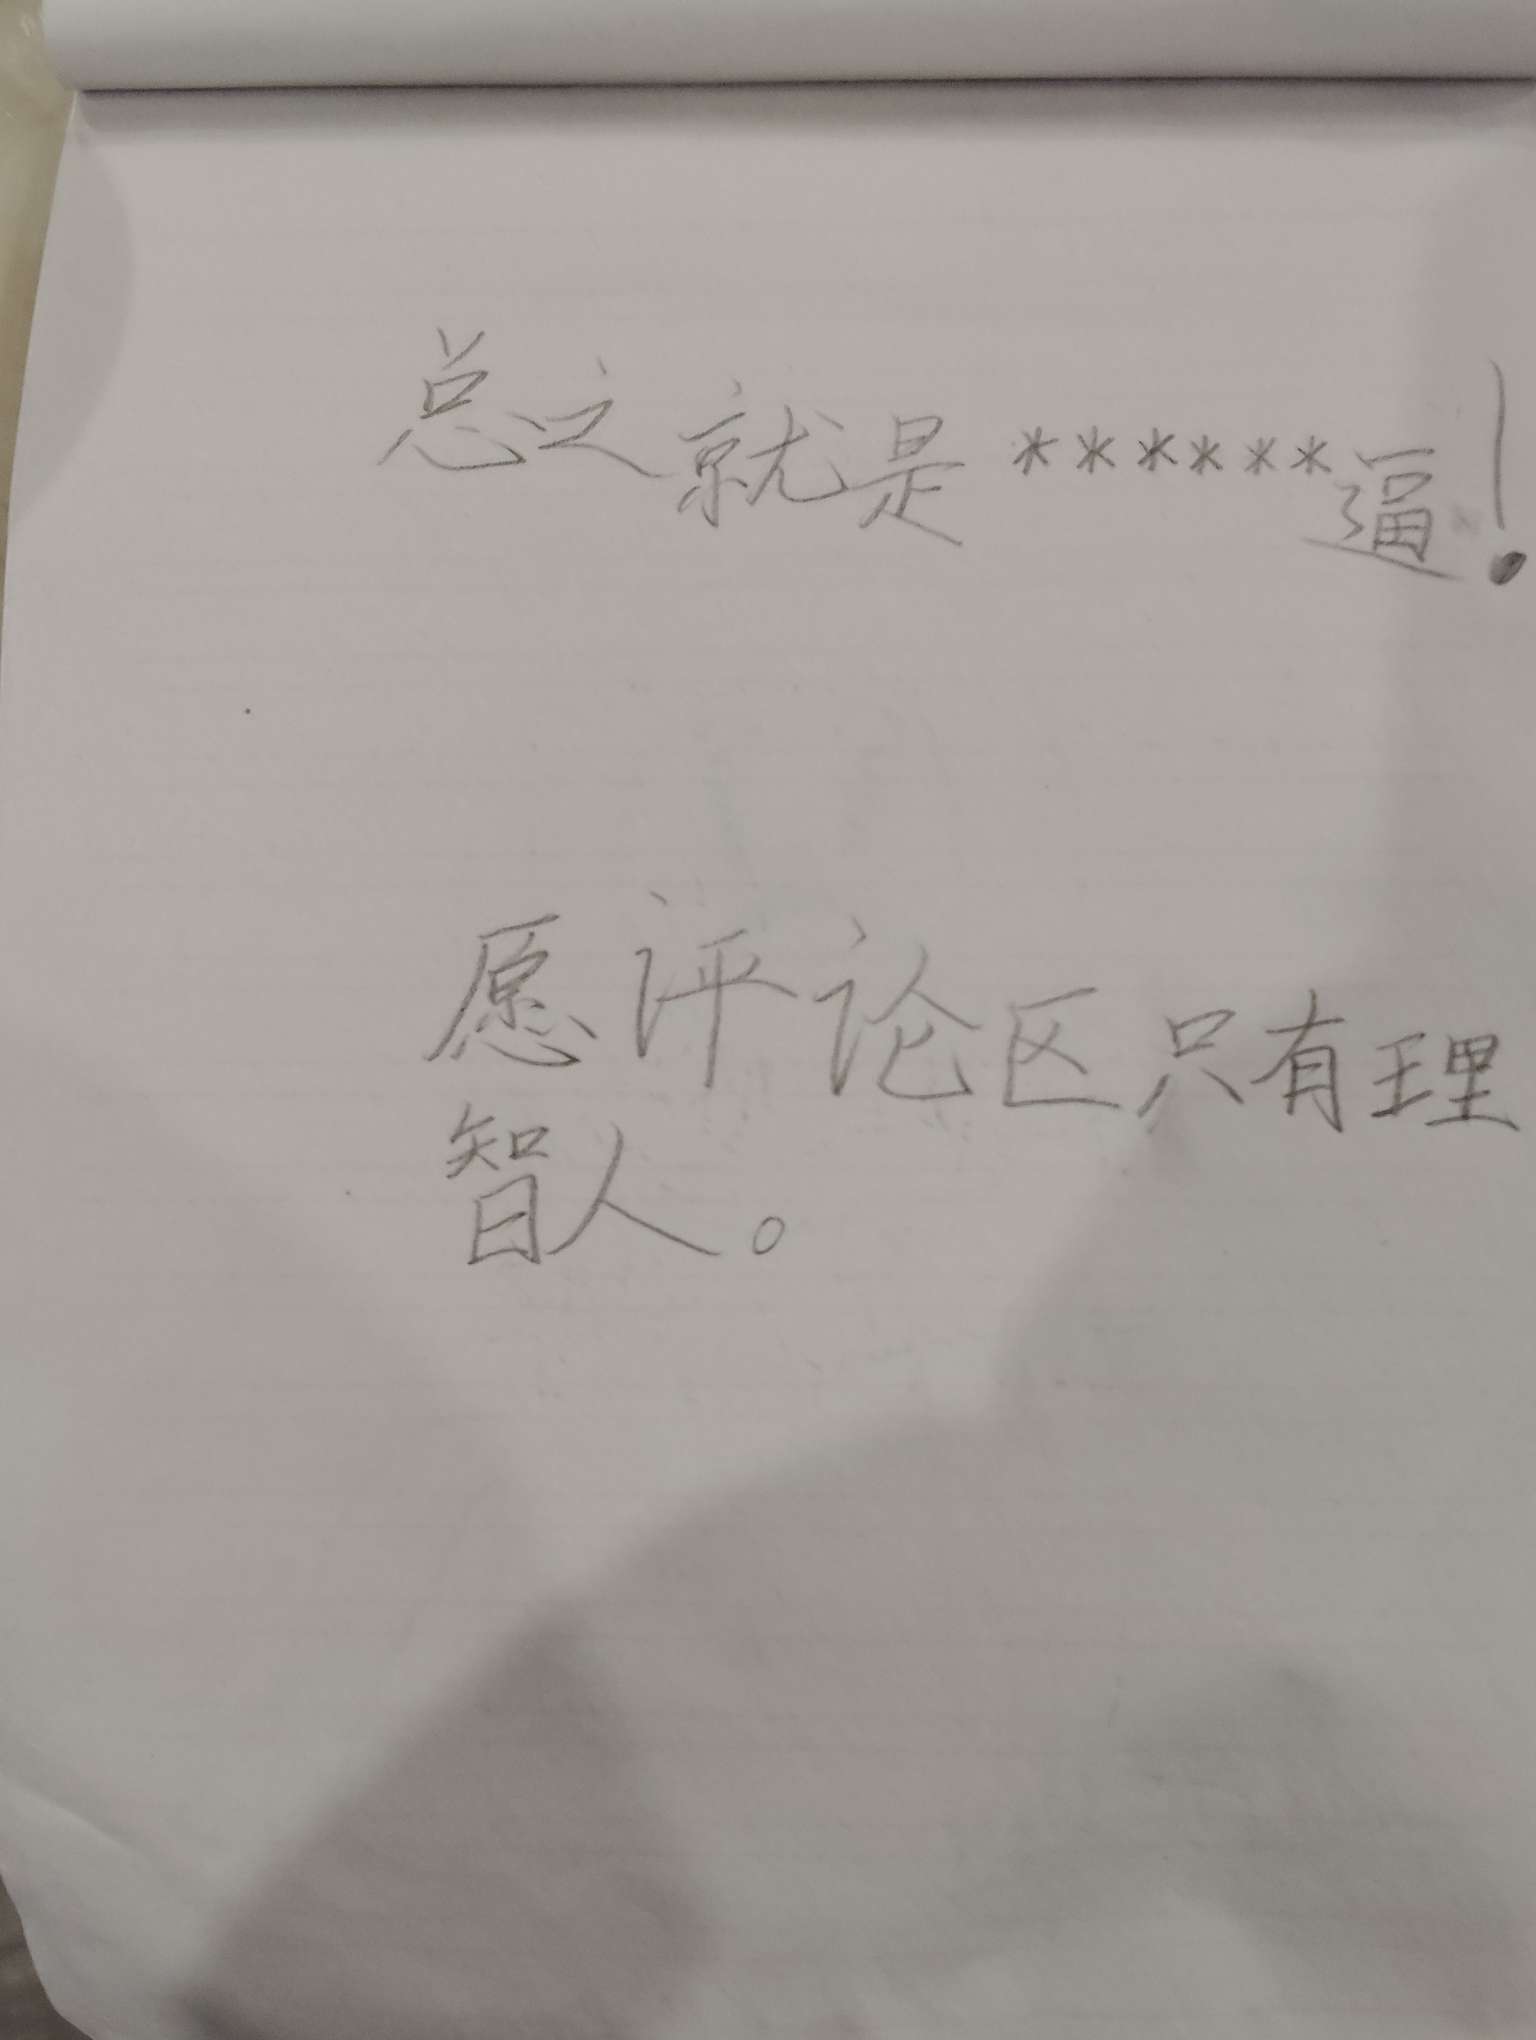 总之就是******逼!
愿评论区只有理
智人。